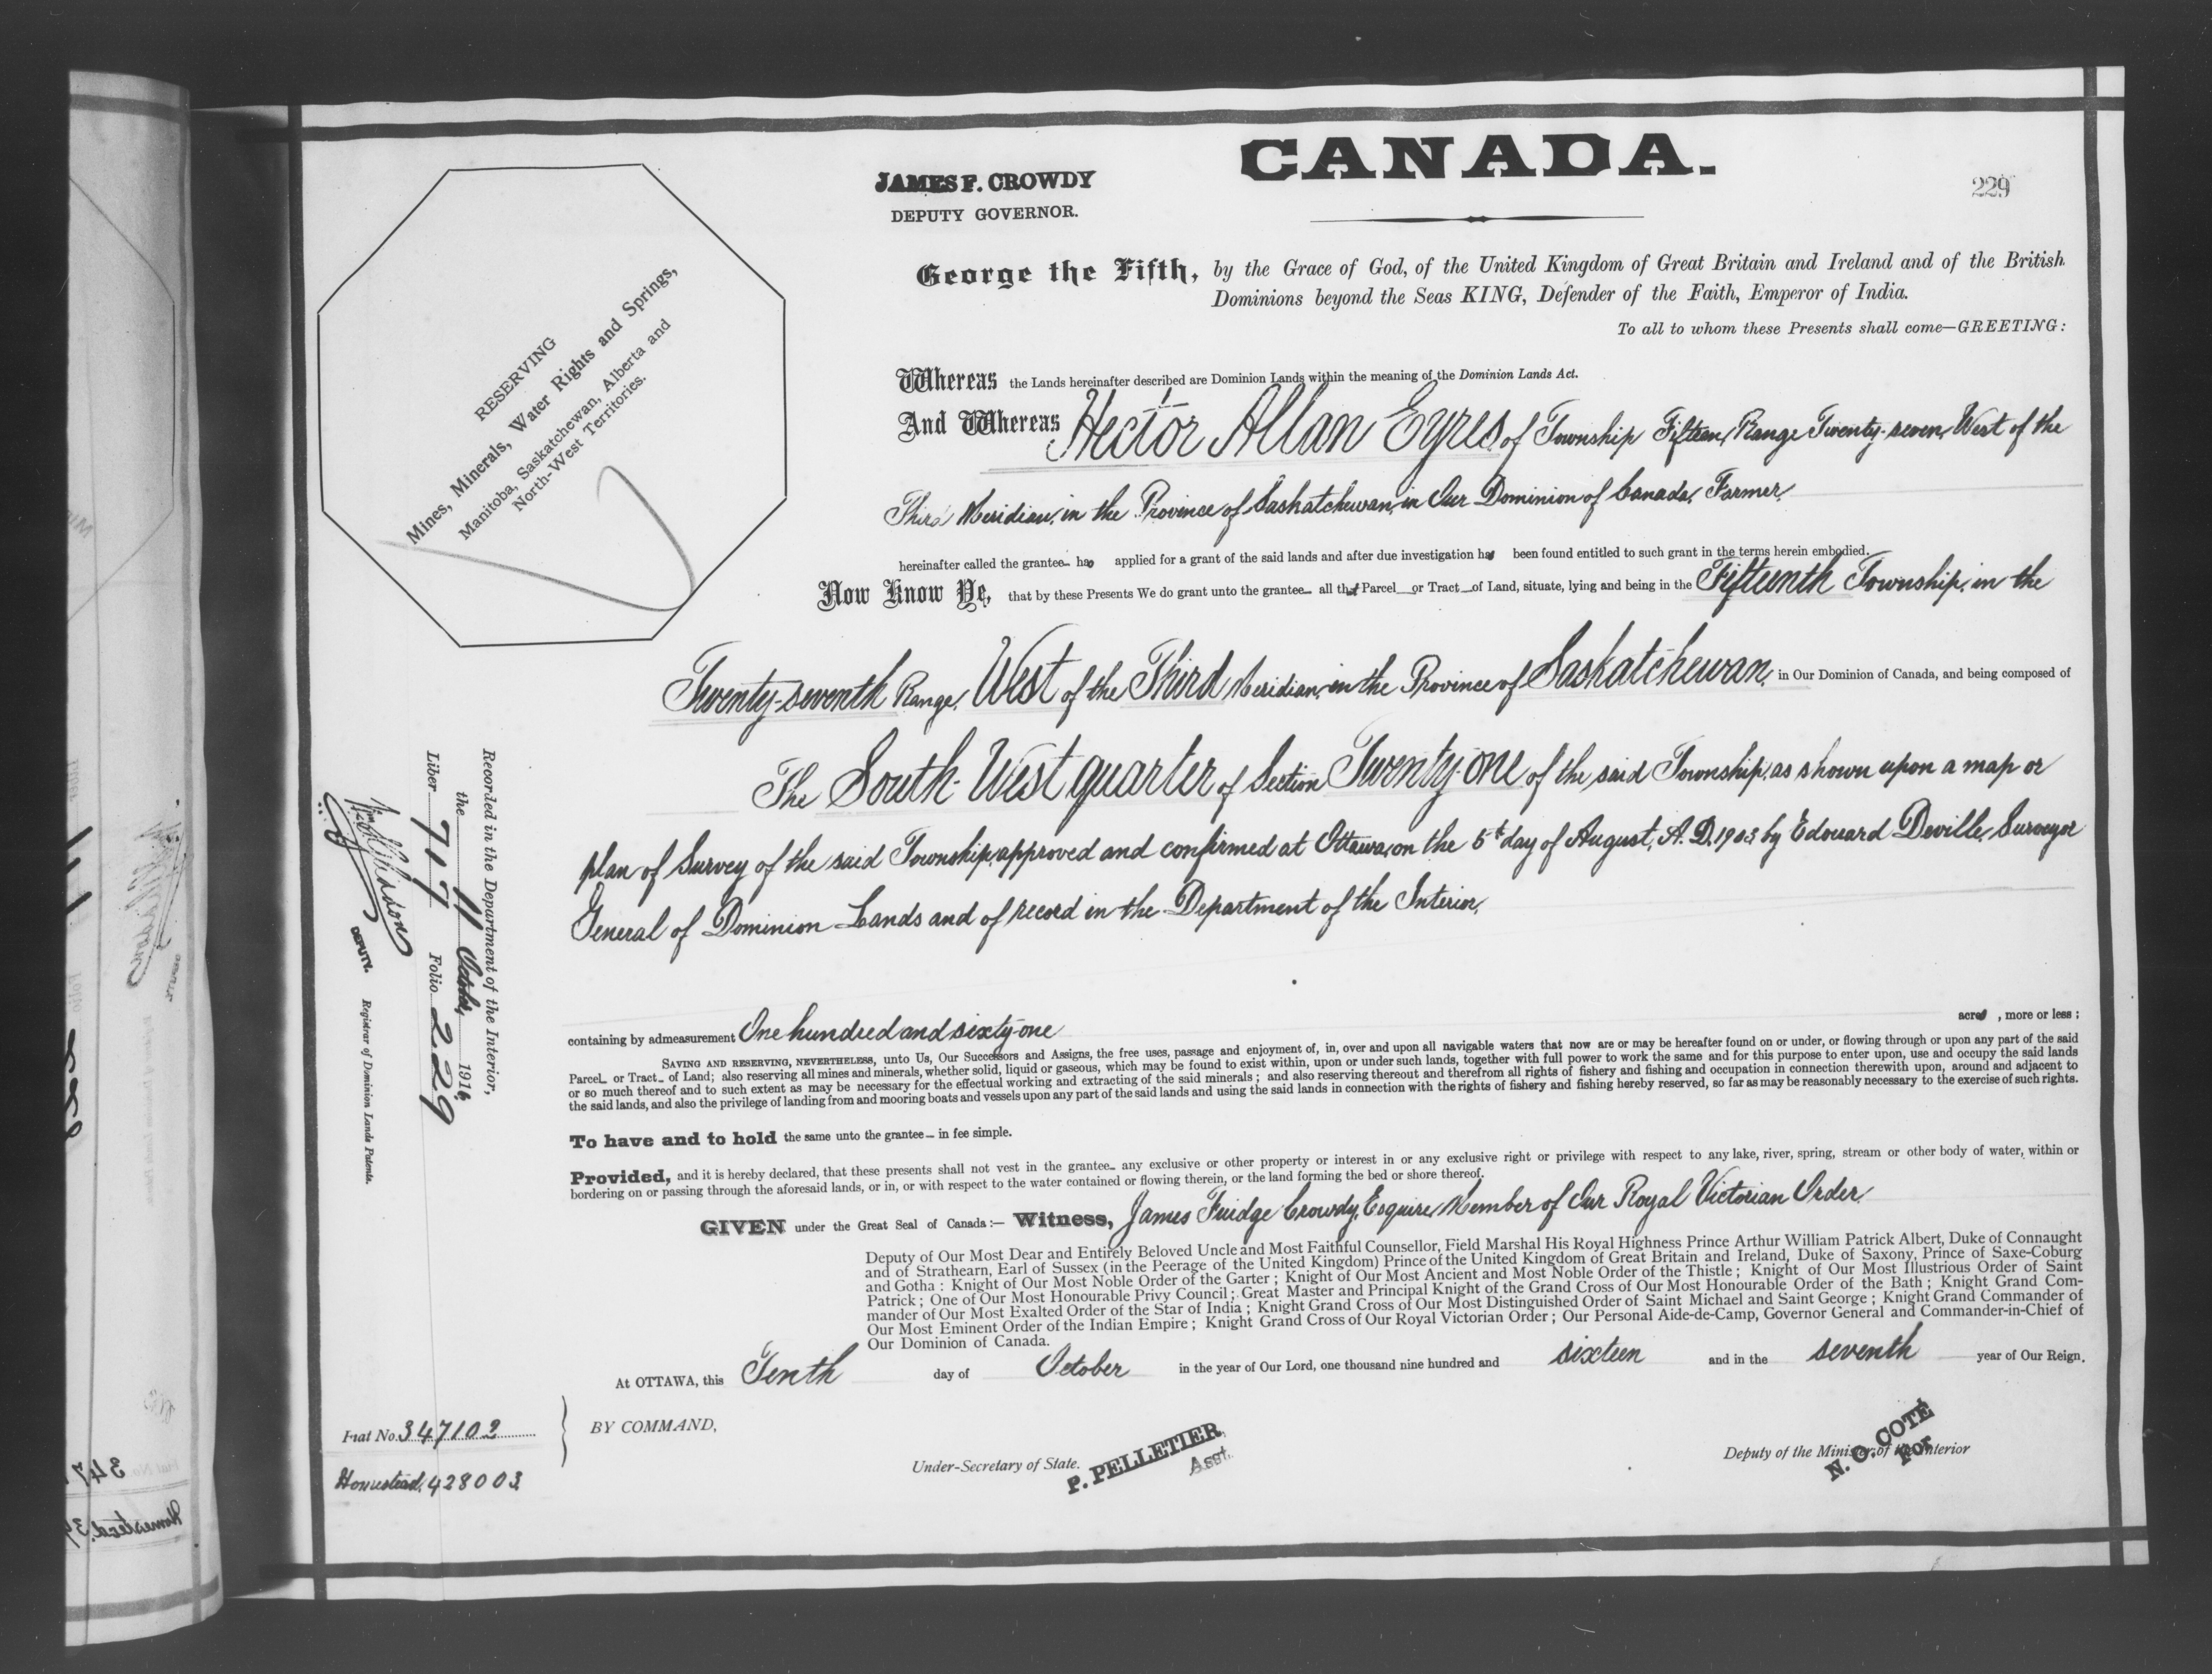 CANADA.
JAMES F. CROWDY
DEPUTY GOVERNOR.
229
RESERVING
Mines, Minerals, Water Rights and Springs,
Manitoba, Saskatchewan, Alberta and
North-West Territories.
George the Fifth, by the Grace of God, of the United Kingdom of Great Britain and Ireland and of the British
Dominions beyond the Seas KING, Defender of the Faith, Emperor of India.
To all to whom these Presents shall come—GREETING:
Whereas the Lands hereinafter described are Dominion Lands within the meaning of the Dominion Lands Act.
And Whereas Hector Allan Eyres of Township Fifteen, Range Twenty-seven, West of the
Third Meridian, in the Province of Saskatchewan, in Our Dominion of Canada, Farmer,
hereinafter called the grantee has applied for a grant of the said lands and after due investigation has been found entitled to such grant in the terms herein embodied.
Now Know Ye, that by these Presents We do grant unto the grantee all that Parcel or Tract of Land, situate, lying and being in the Fifteenth Township, in the
Twenty-seventh Range, West of the Third Meridian, in the Province of Saskatchewan, in Our Dominion of Canada, and being composed of
The South-West quarter of Section Twenty-one of the said Township, as shown upon a map or
plan of Survey of the said Township, approved and confirmed at Ottawa, on the 5th day of August, A.D. 1903 by Edouard Deville, Surveyor
General of Dominion Lands and of record in the Department of the Interior,
containing by admeasurement One hundred and sixty-one acres, more or less;
SAVING AND RESERVING, NEVERTHELESS, unto Us, Our Successors and Assigns, the free uses, passage and enjoyment of, in, over and upon all navigable waters that now are or may be hereafter found on or under, or flowing through or upon any part of the said
Parcel or Tract of Land; also reserving all mines and minerals, whether solid, liquid or gaseous, which may be found to exist within, upon or under such lands, together with full power to work the same and for this purpose to enter upon, use and occupy the said lands
or so much thereof and to such extent as may be necessary for the effectual working and extracting of the said minerals; and also reserving thereout and therefrom all rights of fishery and fishing and occupation in connection therewith upon, around and adjacent to
the said lands, and also the privilege of landing from and mooring boats and vessels upon any part of the said lands and using the said lands in connection with the rights of fishery and fishing hereby reserved, so far as may be reasonably necessary to the exercise of such rights.
To have and to hold the same unto the grantee in fee simple.
Provided, and it is hereby declared, that these presents shall not vest in the grantee any exclusive or other property or interest in or any exclusive right or privilege with respect to any lake, river, spring, stream or other body of water, within or
bordering on or passing through the aforesaid lands, or in, or with respect to the water contained or flowing therein, or the land forming the bed or shore thereof.
GIVEN under the Great Seal of Canada:— Witness, James Fuidge Crowdy, Esquire, Member of Our Royal Victorian Order,
Deputy of Our Most Dear and Entirely Beloved Uncle and Most Faithful Counsellor, Field Marshal His Royal Highness Prince Arthur William Patrick Albert, Duke of Connaught
and of Strathearn, Earl of Sussex (in the Peerage of the United Kingdom) Prince of the United Kingdom of Great Britain and Ireland, Duke of Saxony, Prince of Saxe-Coburg
and Gotha: Knight of Our Most Noble Order of the Garter; Knight of Our Most Ancient and Most Noble Order of the Thistle; Knight of Our Most Illustrious Order of Saint
Patrick; One of Our Most Honourable Privy Council; Great Master and Principal Knight of the Grand Cross of Our Most Honourable Order of the Bath; Knight Grand Com-
mander of Our Most Exalted Order of the Star of India; Knight Grand Cross of Our Most Distinguished Order of Saint Michael and Saint George; Knight Grand Commander of
Our Most Eminent Order of the Indian Empire; Knight Grand Cross of Our Royal Victorian Order; Our Personal Aide-de-Camp, Governor General and Commander-in-Chief of
Our Dominion of Canada.
At OTTAWA, this Tenth day of October in the year of Our Lord, one thousand nine hundred and sixteen and in the seventh year of Our Reign.
BY COMMAND,
Under-Secretary of State.
P. PELLETIER
Asst.
Deputy of the Minister of the Interior
N. O. COTÉ
For
Fiat No. 347102
Homestead. 428003
Recorded in the Department of the Interior,
the 11 October, 1916
Liber 717 Folio 229
DEPUTY. Registrar of Dominion Lands Patents.